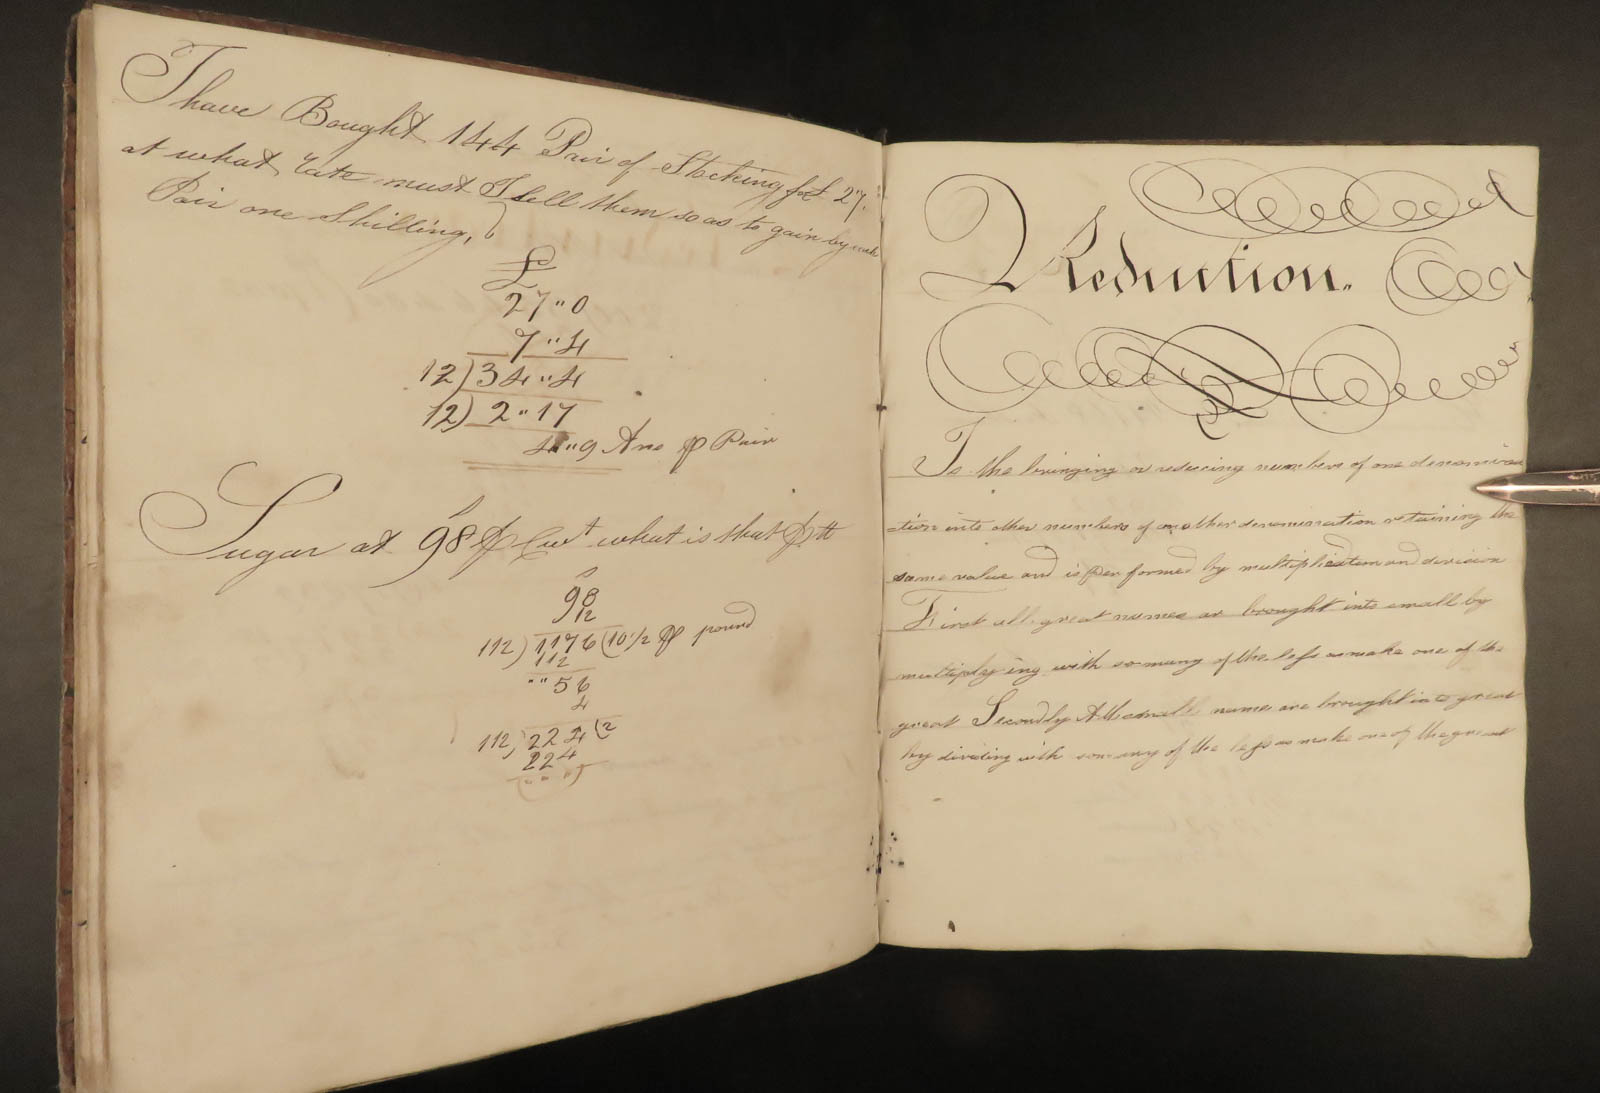 I have Bought 144 Pair of Stocking for £ 27.
at what rate must I sell them so as to gain by each
Pair one Shilling,
£
27 " 0
7 " 4
12) 34 " 4
12) 2 " 17
4 " 9 Ans ⅌ Pair
Sugar at 98 ⅌ Cwt what is that ⅌ lb
s
98
12
112) 1176 (10 1/2 ⅌ pound
112
" " 56
4
112) 224 (2
224
Reduction.
Is the bringing or reducing numbers of one denomina
ation into other numbers of another denomination retaining the
same value and is Performed by multiplication and division
First all great names ar brought into small by
multiplying with so many of the less as make one of the
great Secondly All small names are brought into great
by dividing with so many of the less as make one of the great